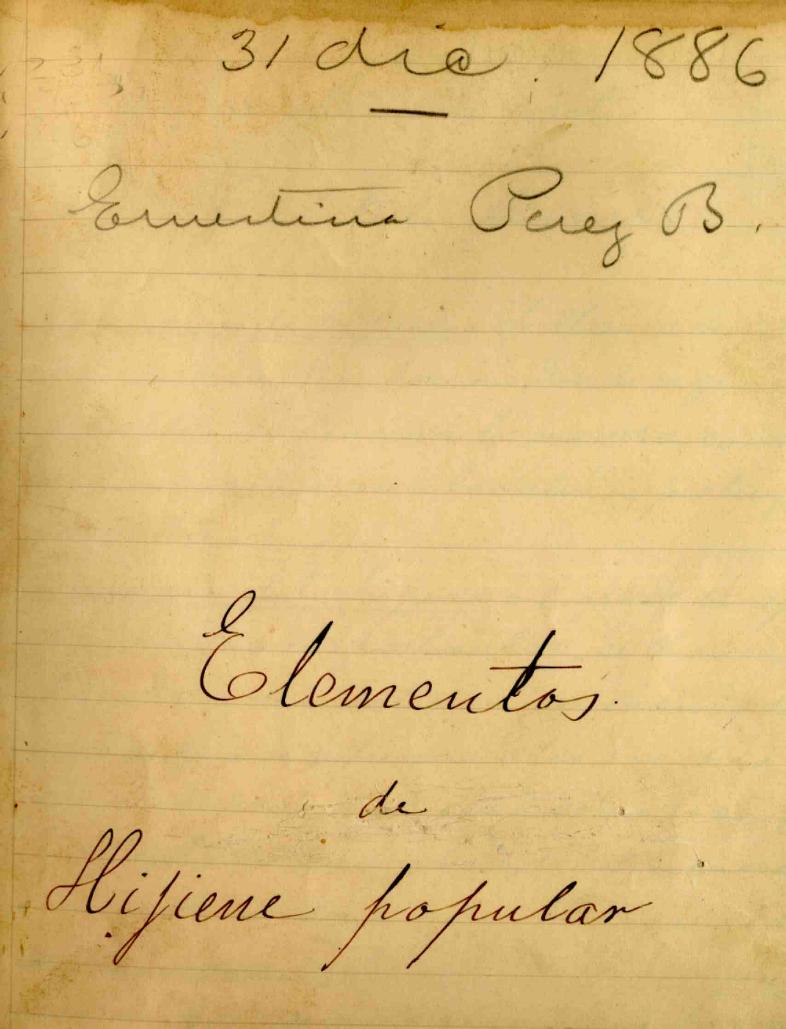 31 dic. 1886
Ernestina Perez B.
Elementos.
de
Hijiene popular